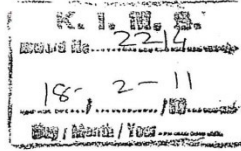 K. I. M. S.
2214
18- 2-11
Day / Month / Year